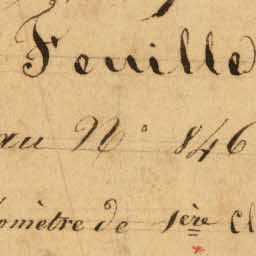 Feuille
au N° 846
omètre de 1ère Cl